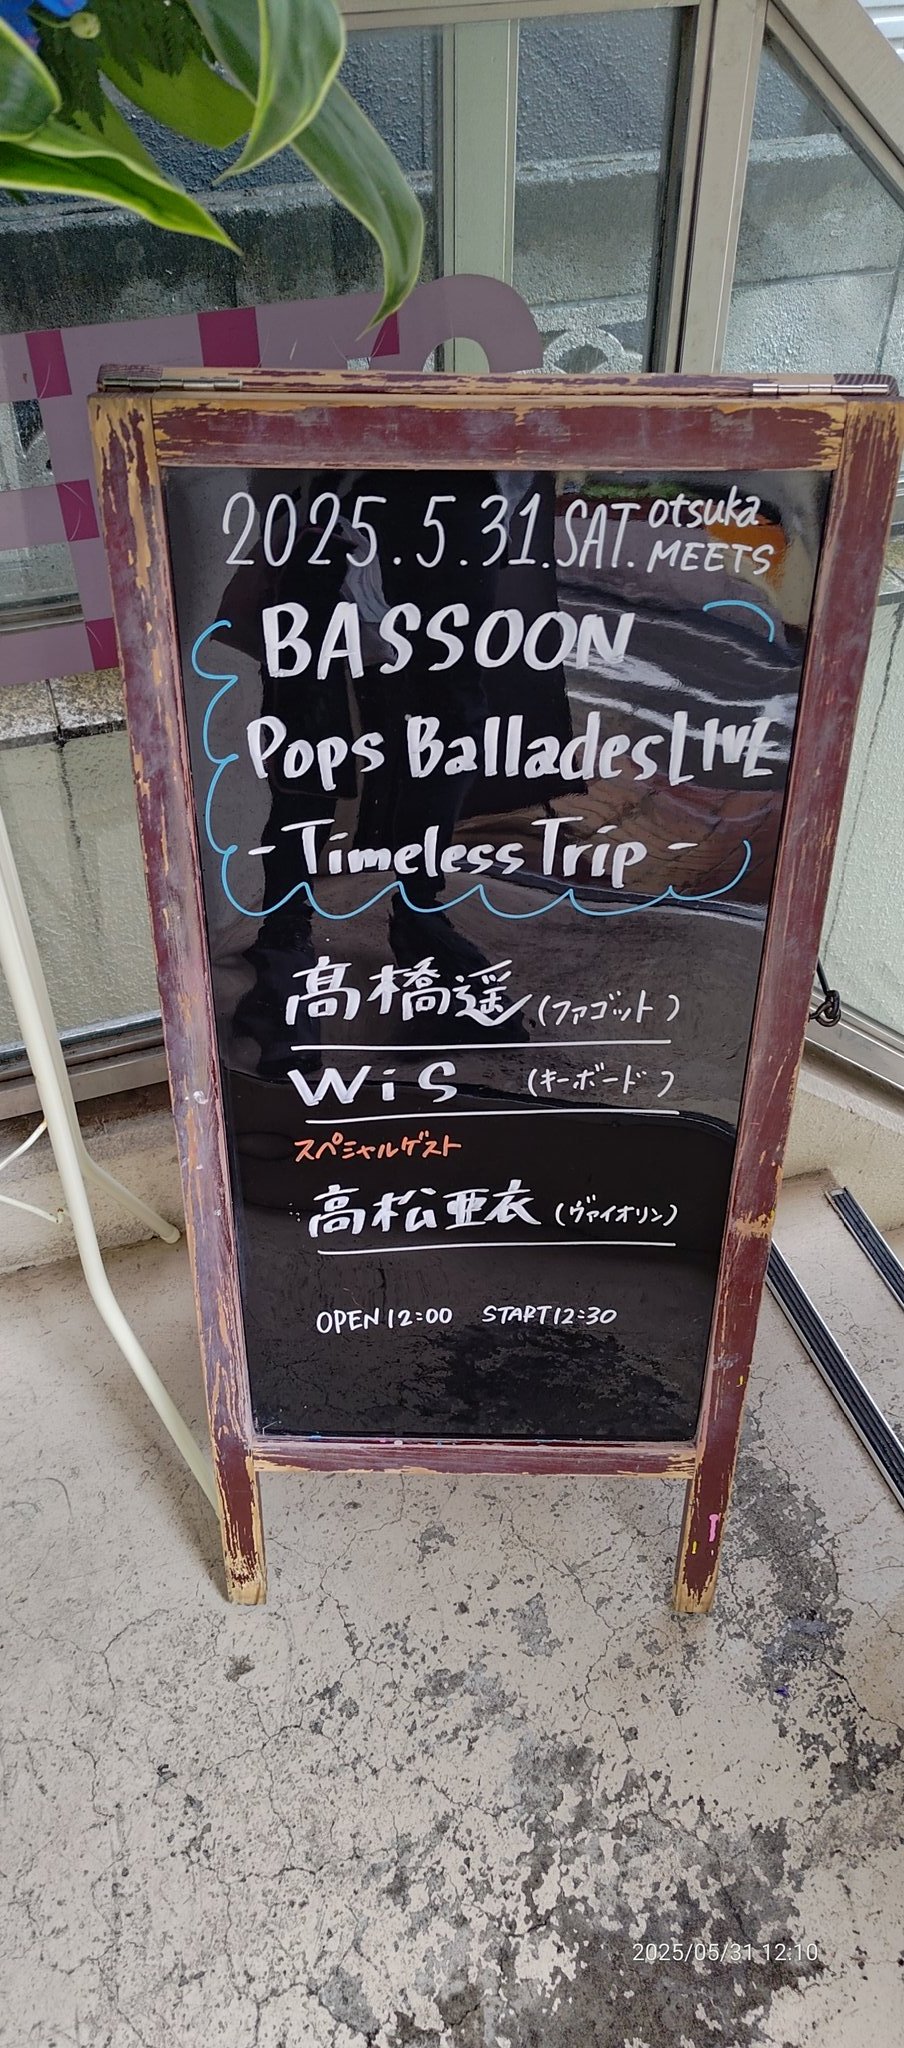 2025.5.31.SAT. otsuka MEETS
BASSOON
Pops Ballades LIVE
- Timeless Trip -
髙橋遥 (ファゴット)
WiS (キーボード)
スペシャルゲスト
高松亜衣 (ヴァイオリン)
OPEN 12:00 START 12:30
2025/05/31 12:10